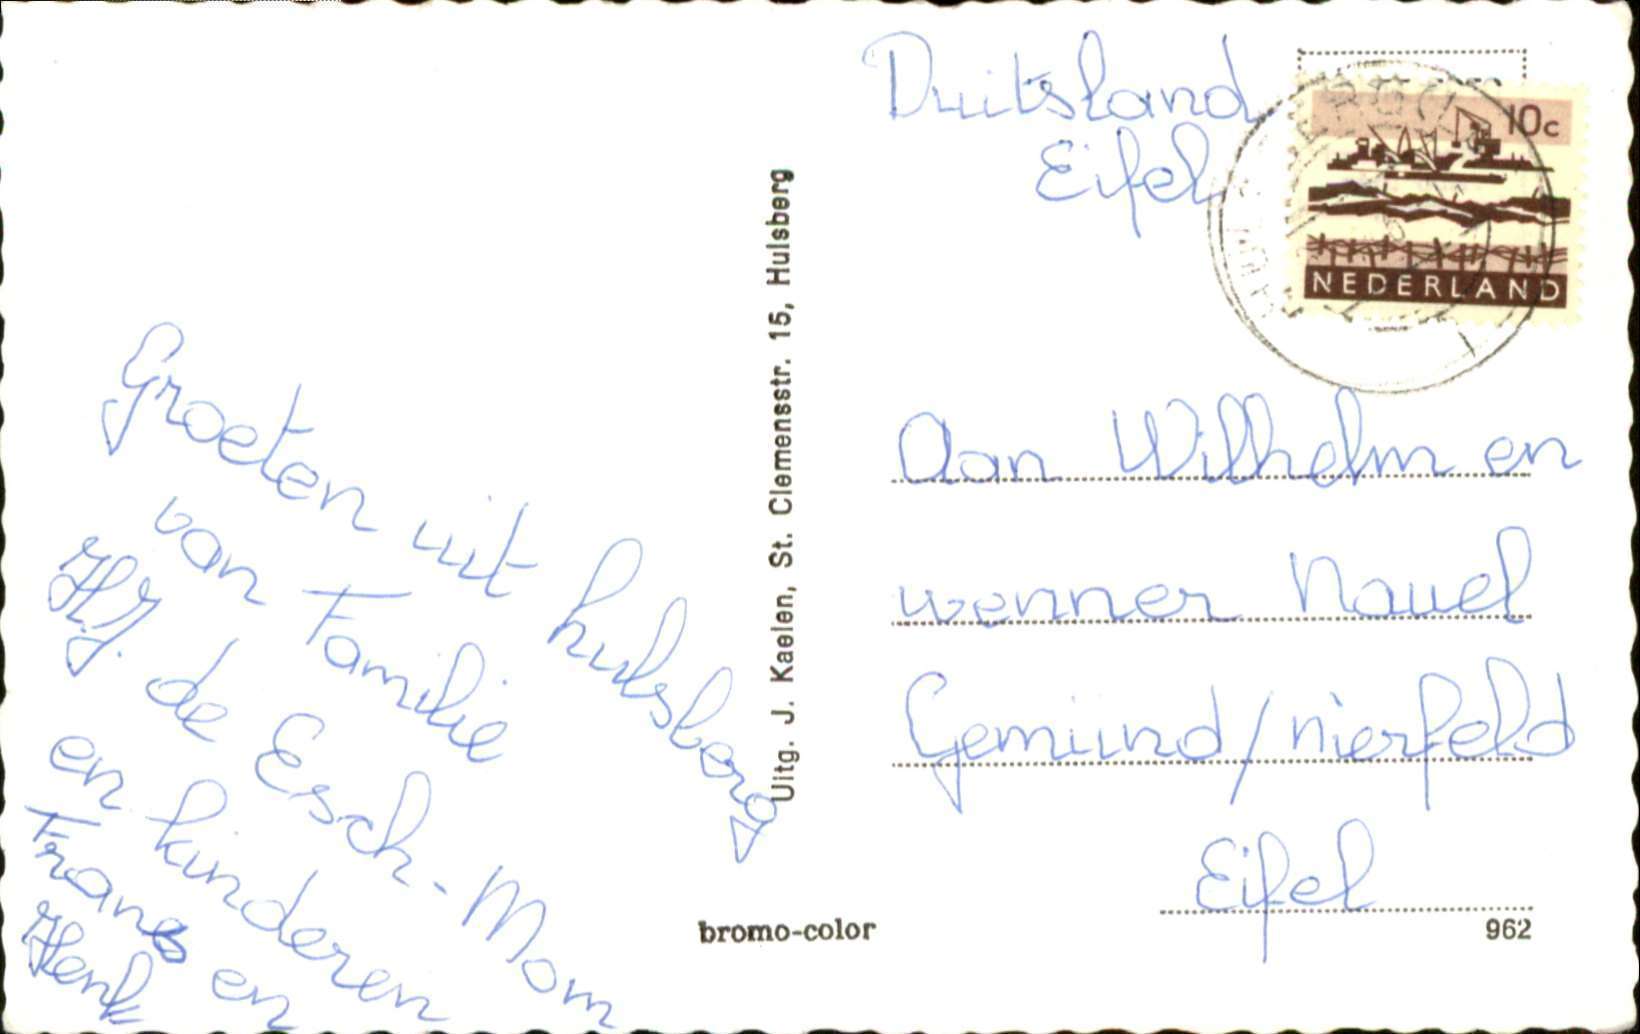 Groeten uit hulsberg
van Familie
H.J. de Esch-Mom
en kinderen
Frans en
Henk
Uitg. J. Kaelen, St. Clemensstr. 15, Hulsberg
bromo-color
Duitsland
Eifel
10c
NEDERLAND
Aan Wilhelm en
wenner Nauel
Gemünd/nierfeld
Eifel
962